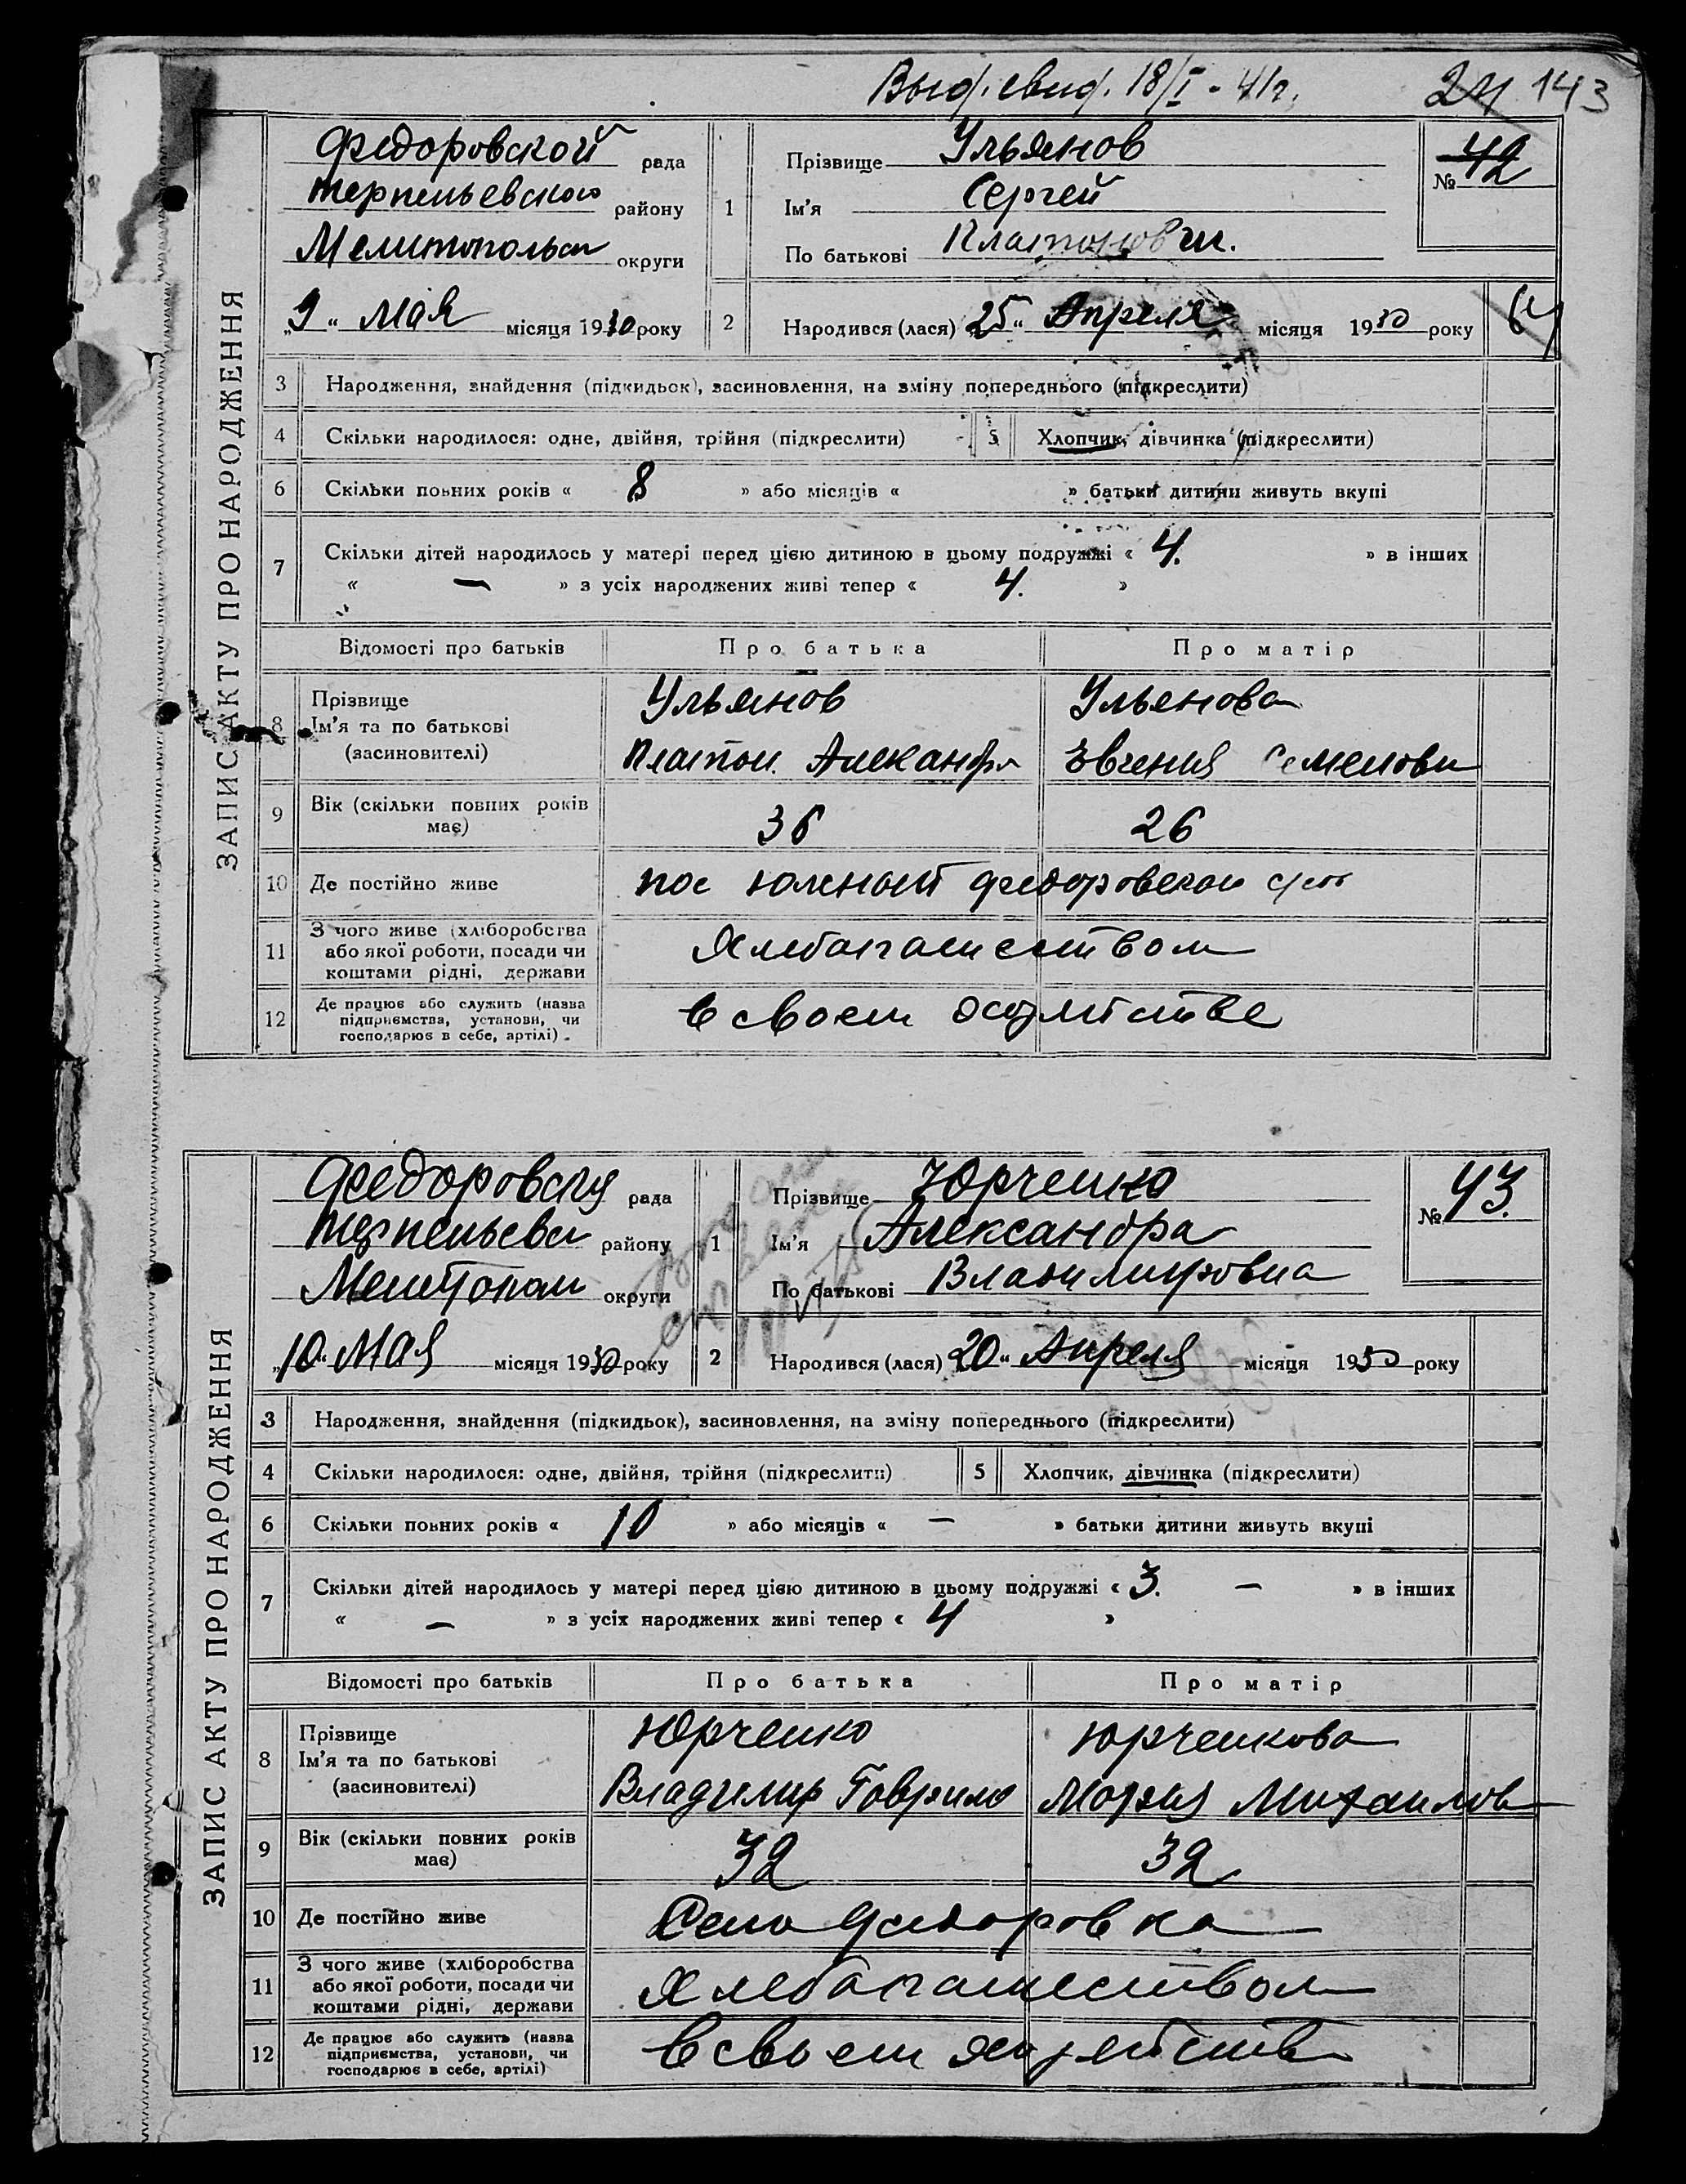 Выд. свид. 18/I - 41г.
24 143
ЗАПИС АКТУ ПРО НАРОДЖЕННЯ
Федоровской рада
Терпеньевского району
Мелитопольск округи
„9“ мая місяця 1930 року
1 Прізвище Ульянов
Ім'я Сергей
По батькові Платонович.
№ 42
2 Народився (лася) „25“ Апреля місяця 1930 року
64
3 Народження, знайдення (підкидьок), засиновлення, на зміну попереднього (підкреслити)
4 Скільки народилося: одне, двійня, трійня (підкреслити) 5 Хлопчик, дівчинка (підкреслити)
6 Скільки повних років « 8 » або місяців « » батьки дитини живуть вкупі
7 Скільки дітей народилось у матері перед цією дитиною в цьому подружжі « 4. » в інших
« — » з усіх народжених живі тепер « 4. »
Відомості про батьків Про батька Про матір
8 Прізвище Ульянов Ульенова
Ім'я та по батькові
(засновителі) Платон. Александр Евгения Семеновн
9 Вік (скільки повних років
має) 36 26
10 Де постійно живе пос юлсный федоровской с/сов
11 З чого живе (хліборобства
або якої роботи, посади чи
коштами рідні, держави Хлебопашеством
12 Де працює або служить (назва
підприємства, установи, чи
господарює в себе, артілі). в своем хозяйстве
ЗАПИС АКТУ ПРО НАРОДЖЕННЯ
Федоровску рада
Терпеньевск району
Мелитопол округи
„10“ Мая місяця 1930 року
1 Прізвище Юрченко
Ім'я Александра
По батькові Владимировна
№ 43.
2 Народився (лася) „20“ Апреля місяця 1930 року
3 Народження, знайдення (підкидьок), засиновлення, на зміну попереднього (підкреслити)
4 Скільки народилося: одне, двійня, трійня (підкреслити) 5 Хлопчик, дівчинка (підкреслити)
6 Скільки повних років « 10 » або місяців « — » батьки дитини живуть вкупі
7 Скільки дітей народилось у матері перед цією дитиною в цьому подружжі « 3. — » в інших
« — » з усіх народжених живі тепер « 4 »
Відомості про батьків Про батька Про матір
8 Прізвище Юрченко Юрченкова
Ім'я та по батькові
(засиновителі) Владимир Гаврило Мария Михаилов
9 Вік (скільки повних років
має) 32 32
10 Де постійно живе Село Федоровка
11 З чого живе (хліборобства
або якої роботи, посади чи
коштами рідні, держави Хлебопашеством
12 Де працює або служить (назва
підприємства, установи, чи
господарює в себе, артілі) в своем хозяйств